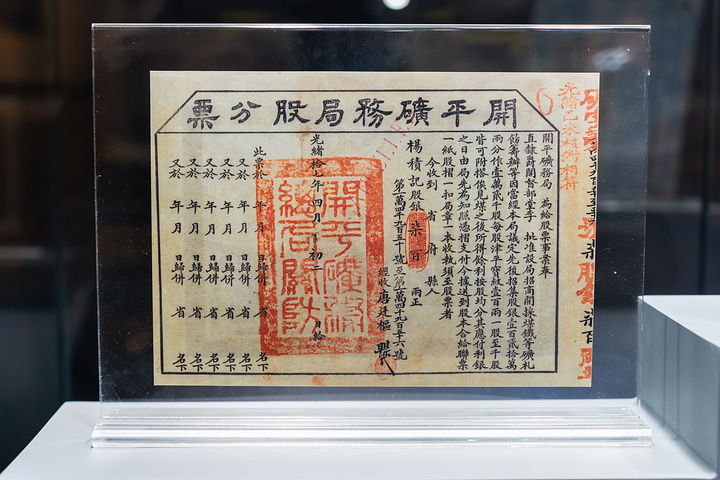 開平礦務局股分票
開平礦務局 為給股票事案奉
直隸爵閣督部堂李 批准設局招商開採煤鐵等礦札
飭籌辦等因當經本局議定先後招集股銀壹百貳拾萬
兩分作壹萬貳千股每股津平寶紋壹百兩一股至千股
皆可附搭俟見煤之後所得餘利按股均分其應付利銀
之日由局先為知照憑摺支付今據送到股本合給聯票
一紙股摺一扣局章一本收執須至股票者
今收到 省 府 縣人
楊積記股銀柒百 兩正
第一萬四千九百五十號至第一萬四千九百五十六號
經收唐廷樞
光緒拾七年四月初二日給
開平礦務
總局關防
此票於 年 月 日歸併 省 名下
又於 年 月 日歸併 省 名下
又於 年 月 日歸併 省 名下
又於 年 月 日歸併 省 名下
又於 年 月 日歸併 省 名下
又於 年 月 日歸併 省 名下